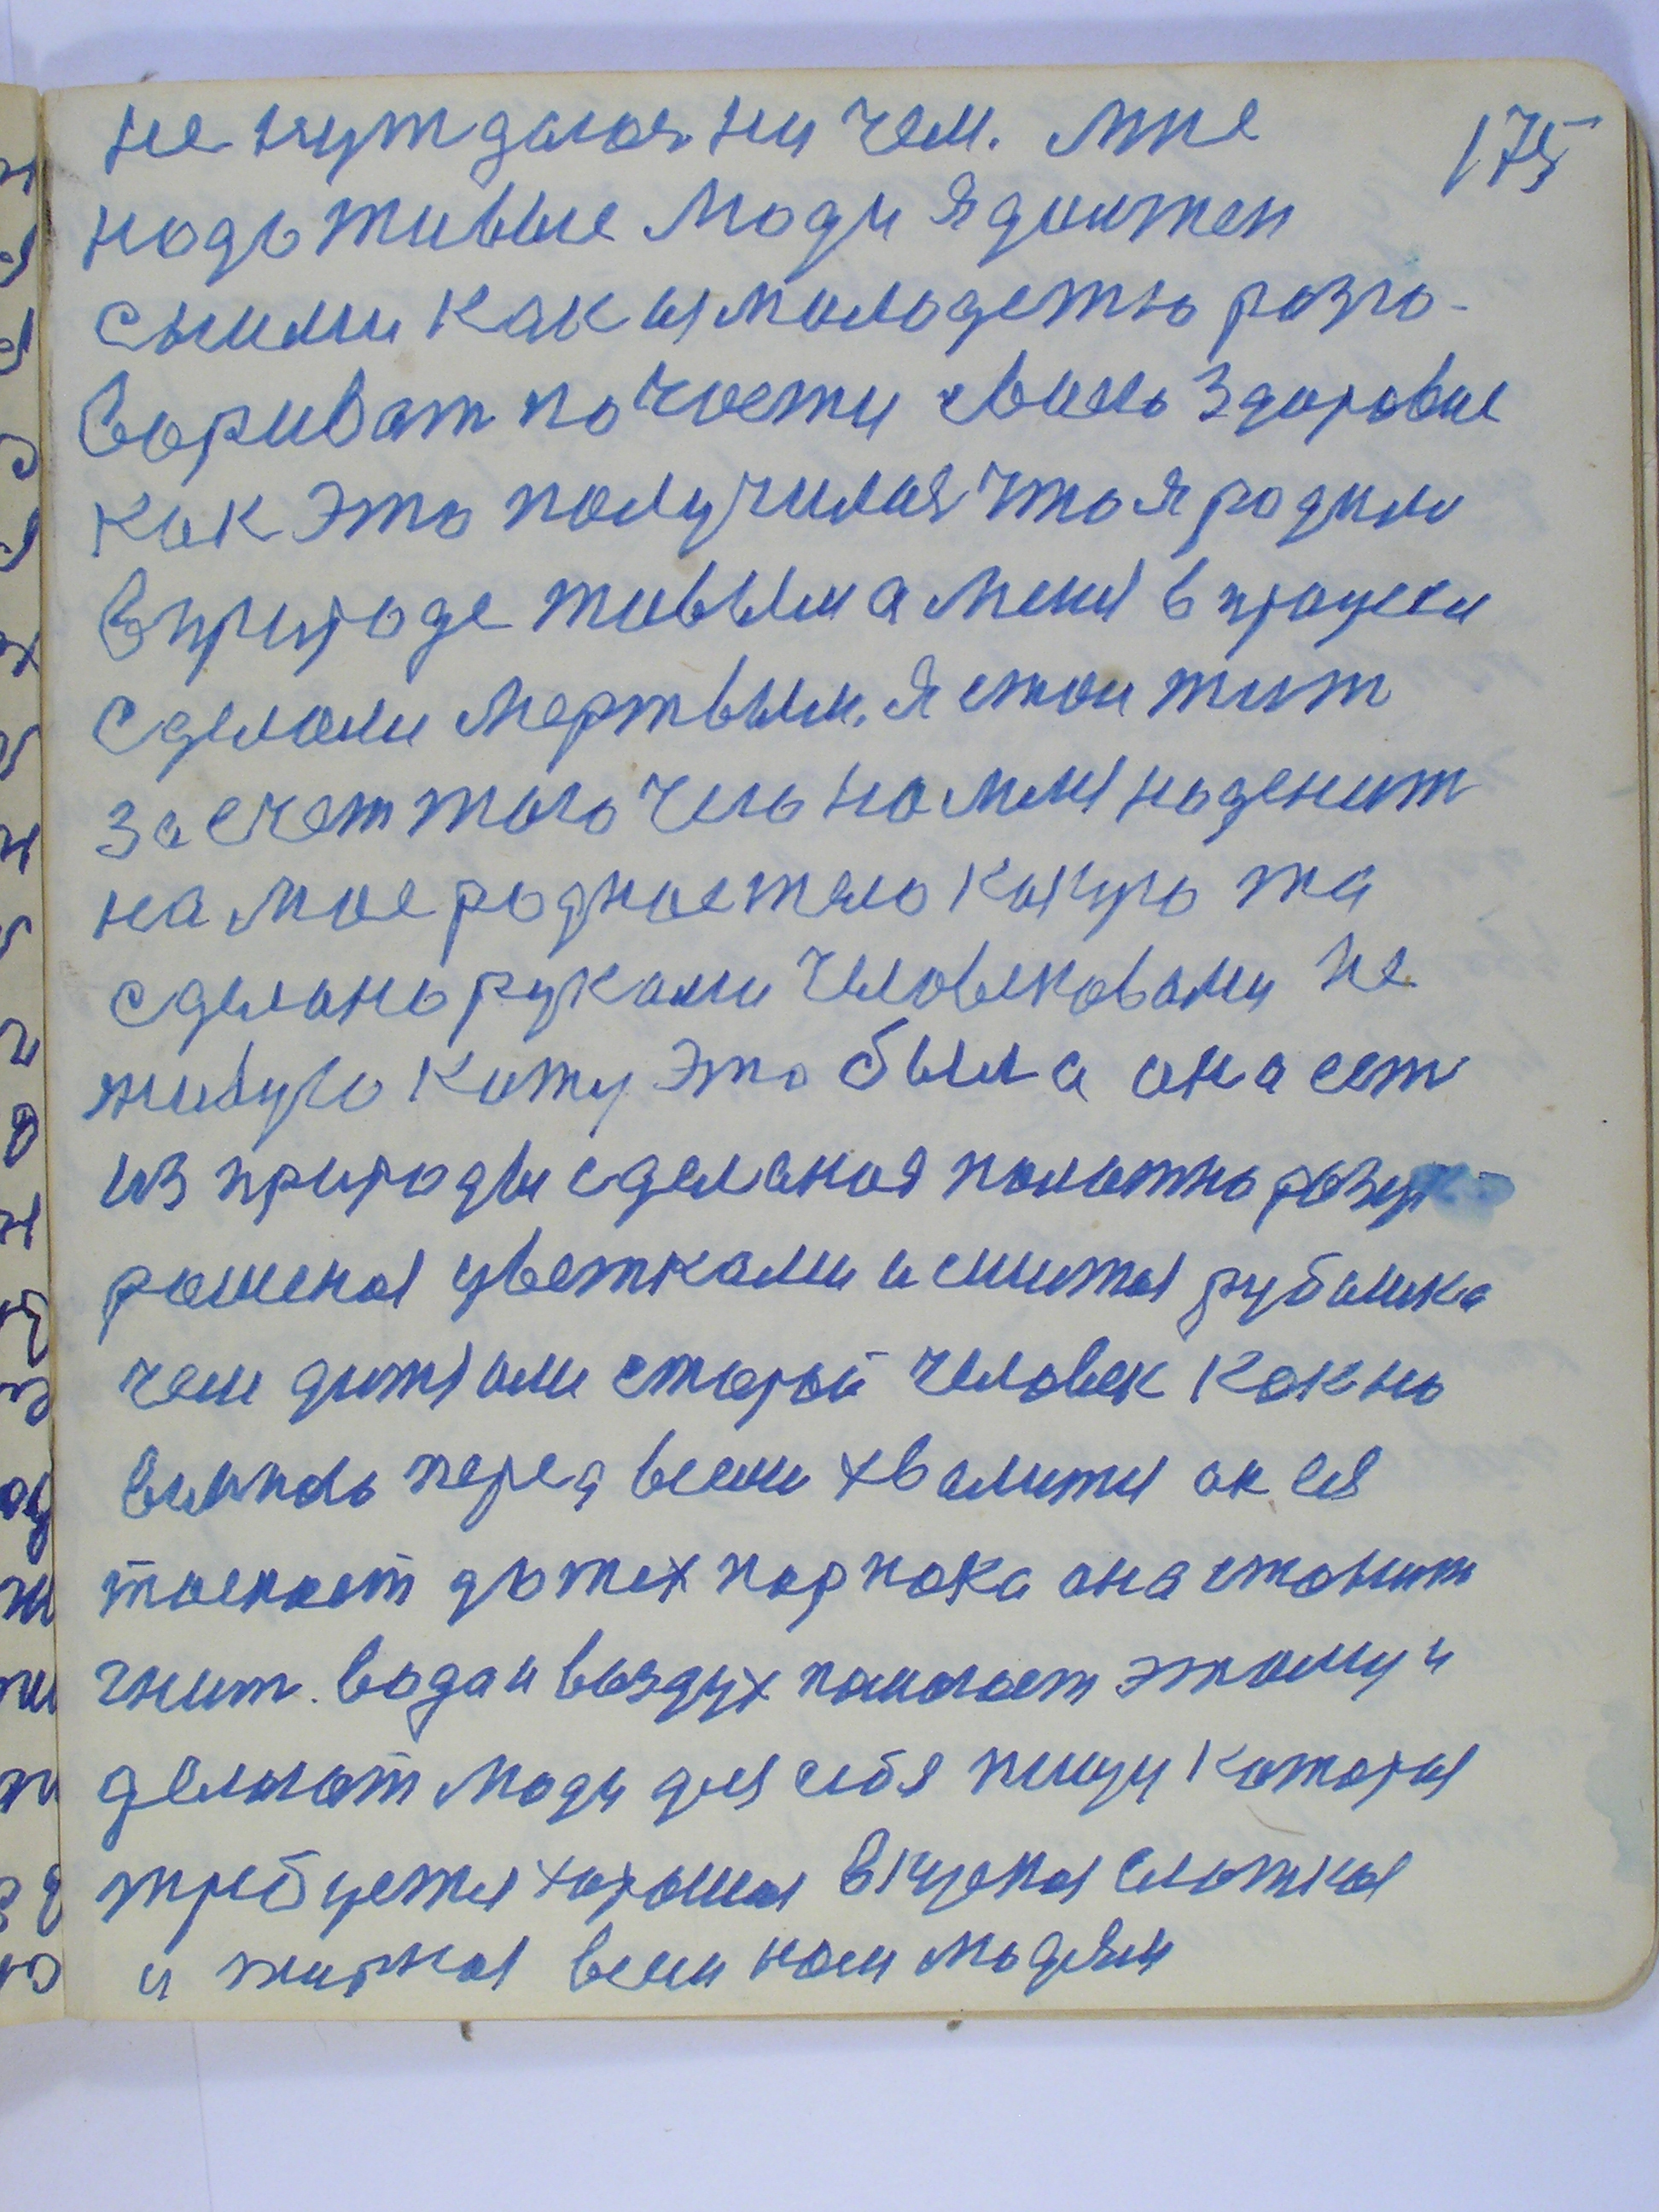 не нуждаюся ни чем. Мне 175
надо живые люди я должен
сними как и молодежю разго-
вариват по части свaего здоровие
как это получилася что я родилс
в природе живым а меня в процеси
сделали мертвым. я стои жит
за счет того чего на меня наденит
на мое родное тело какую жа
сделано руками человековами не
живую кожу это была она ест
из природы сделаная полотно розук-
рашеная цветками и шитая рубашка
чем дитя или старый человек как но
перед всеми хвалится ак ея
таскает до тех пор пока она станит
гнит. вода и воздух помогает этому и
делают люди для себя пищу которая
требуется хорошая вкусная слаткая
и жирная всем нам людям